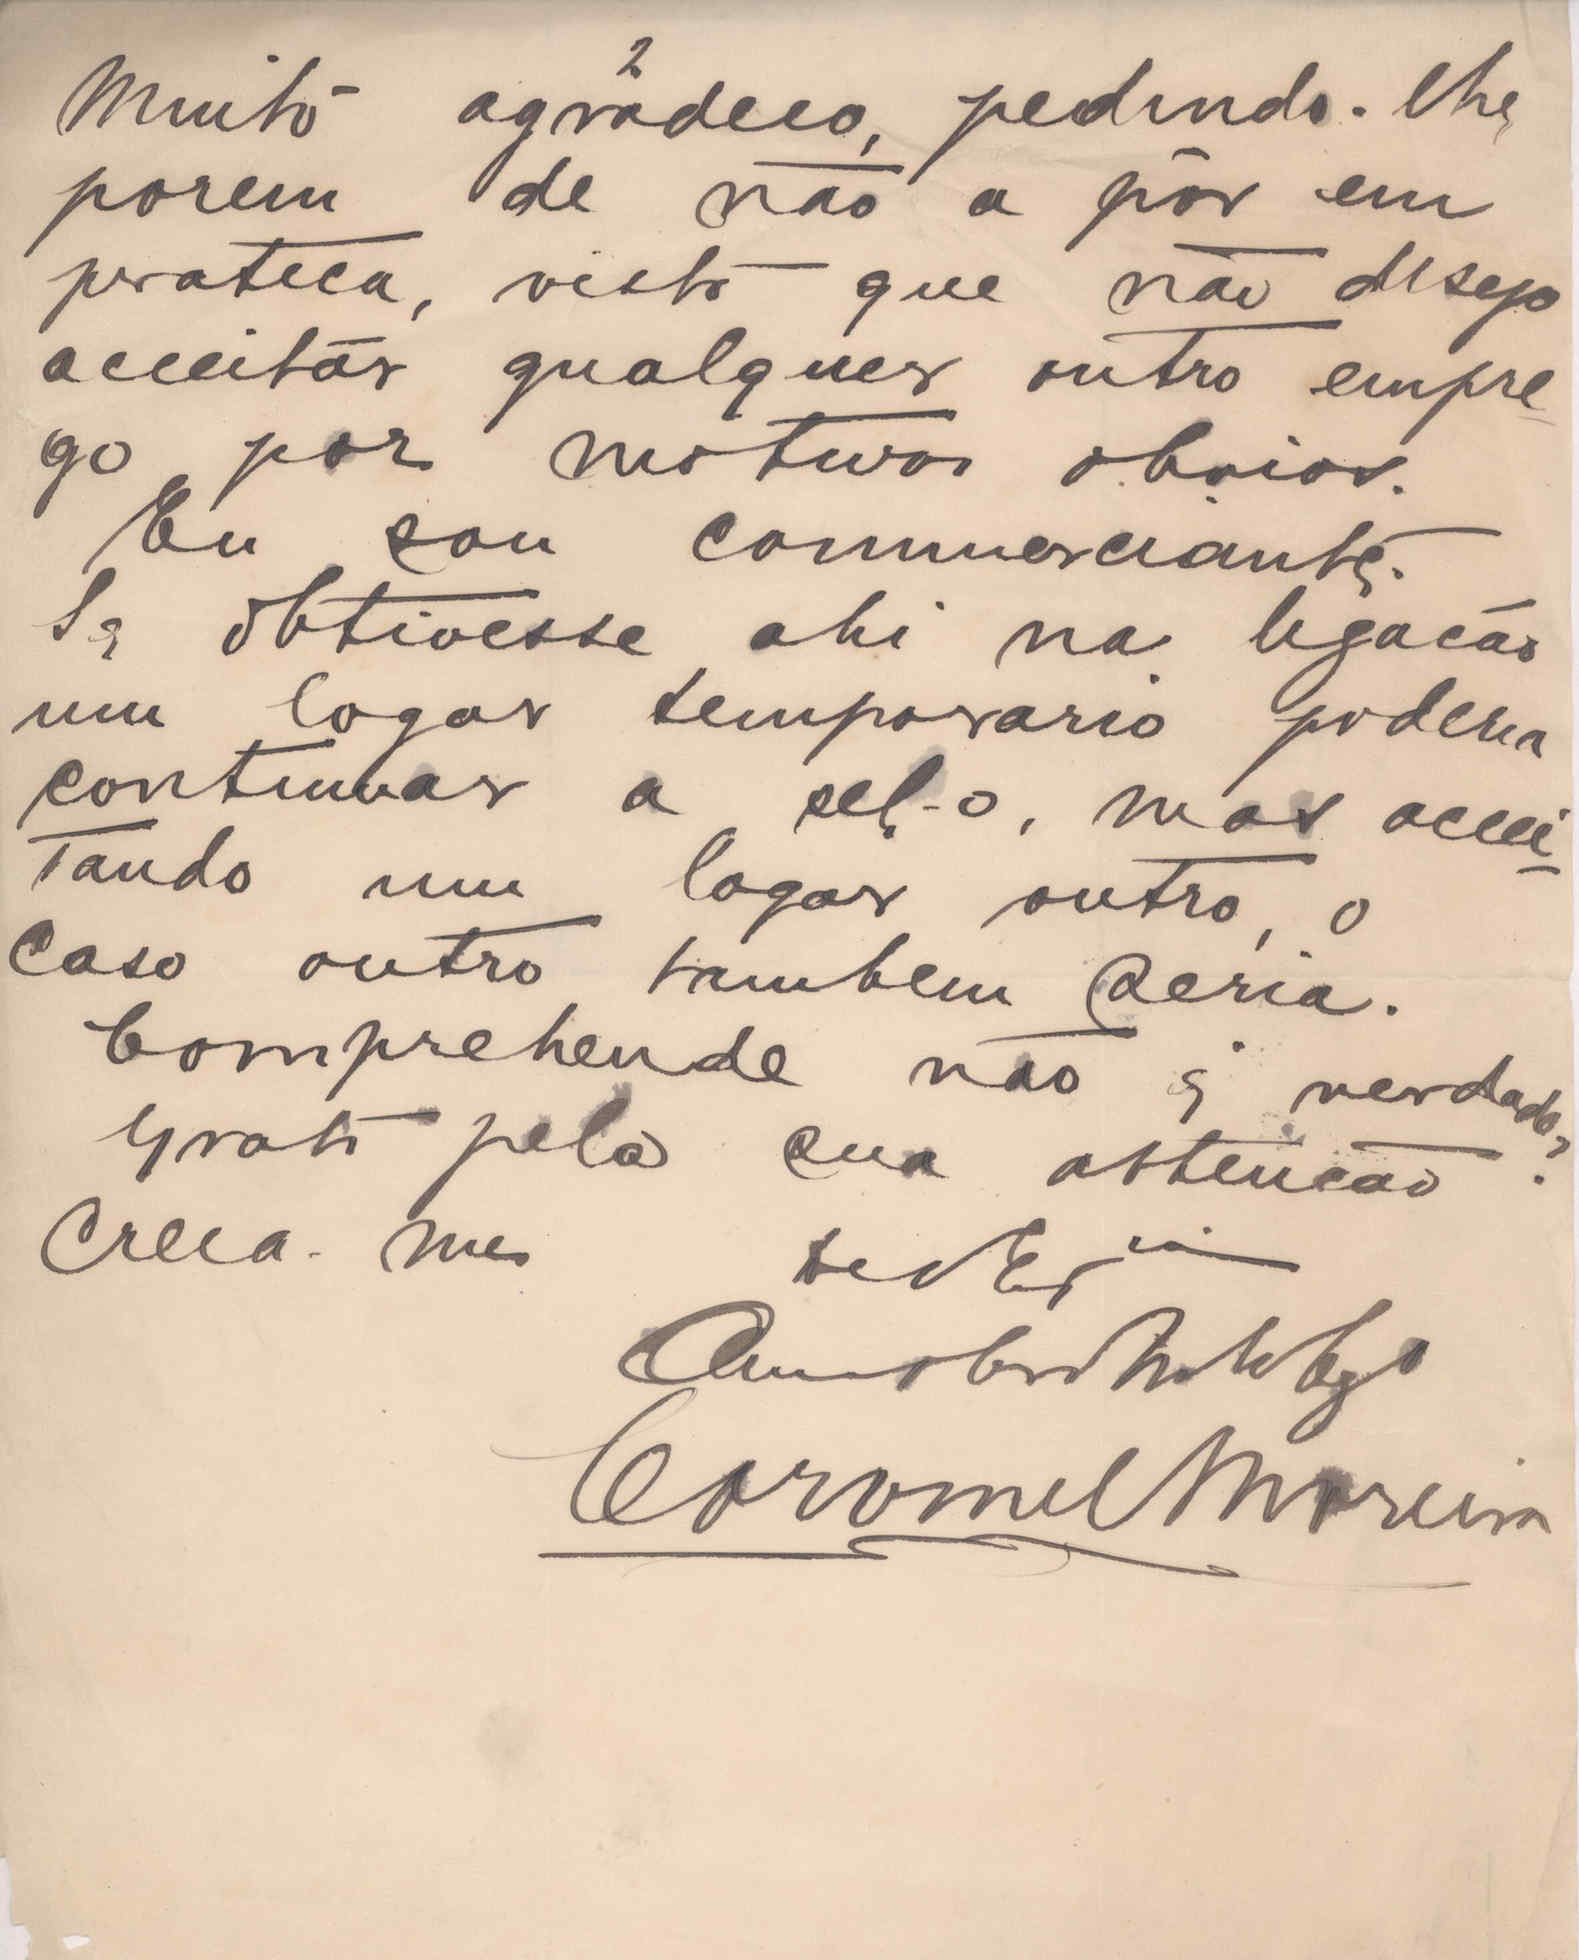 2
Muito agradeço, pedindo-lhe,
porem de não a pôr em
pratica, visto que não desejo
acceitar qualquer outro empre-
go por motivos obvios.
Eu sou commerciante.
Se obtivesse ahi na legação
um logar temporario poderia
continuar a sel-o, mas accei-
tando um logar outro, o
caso outro tambem seria.
Comprehende não é verdade?
Grato pela sua attenção
creia-me de V. Ex.ia
Coromel Moreira